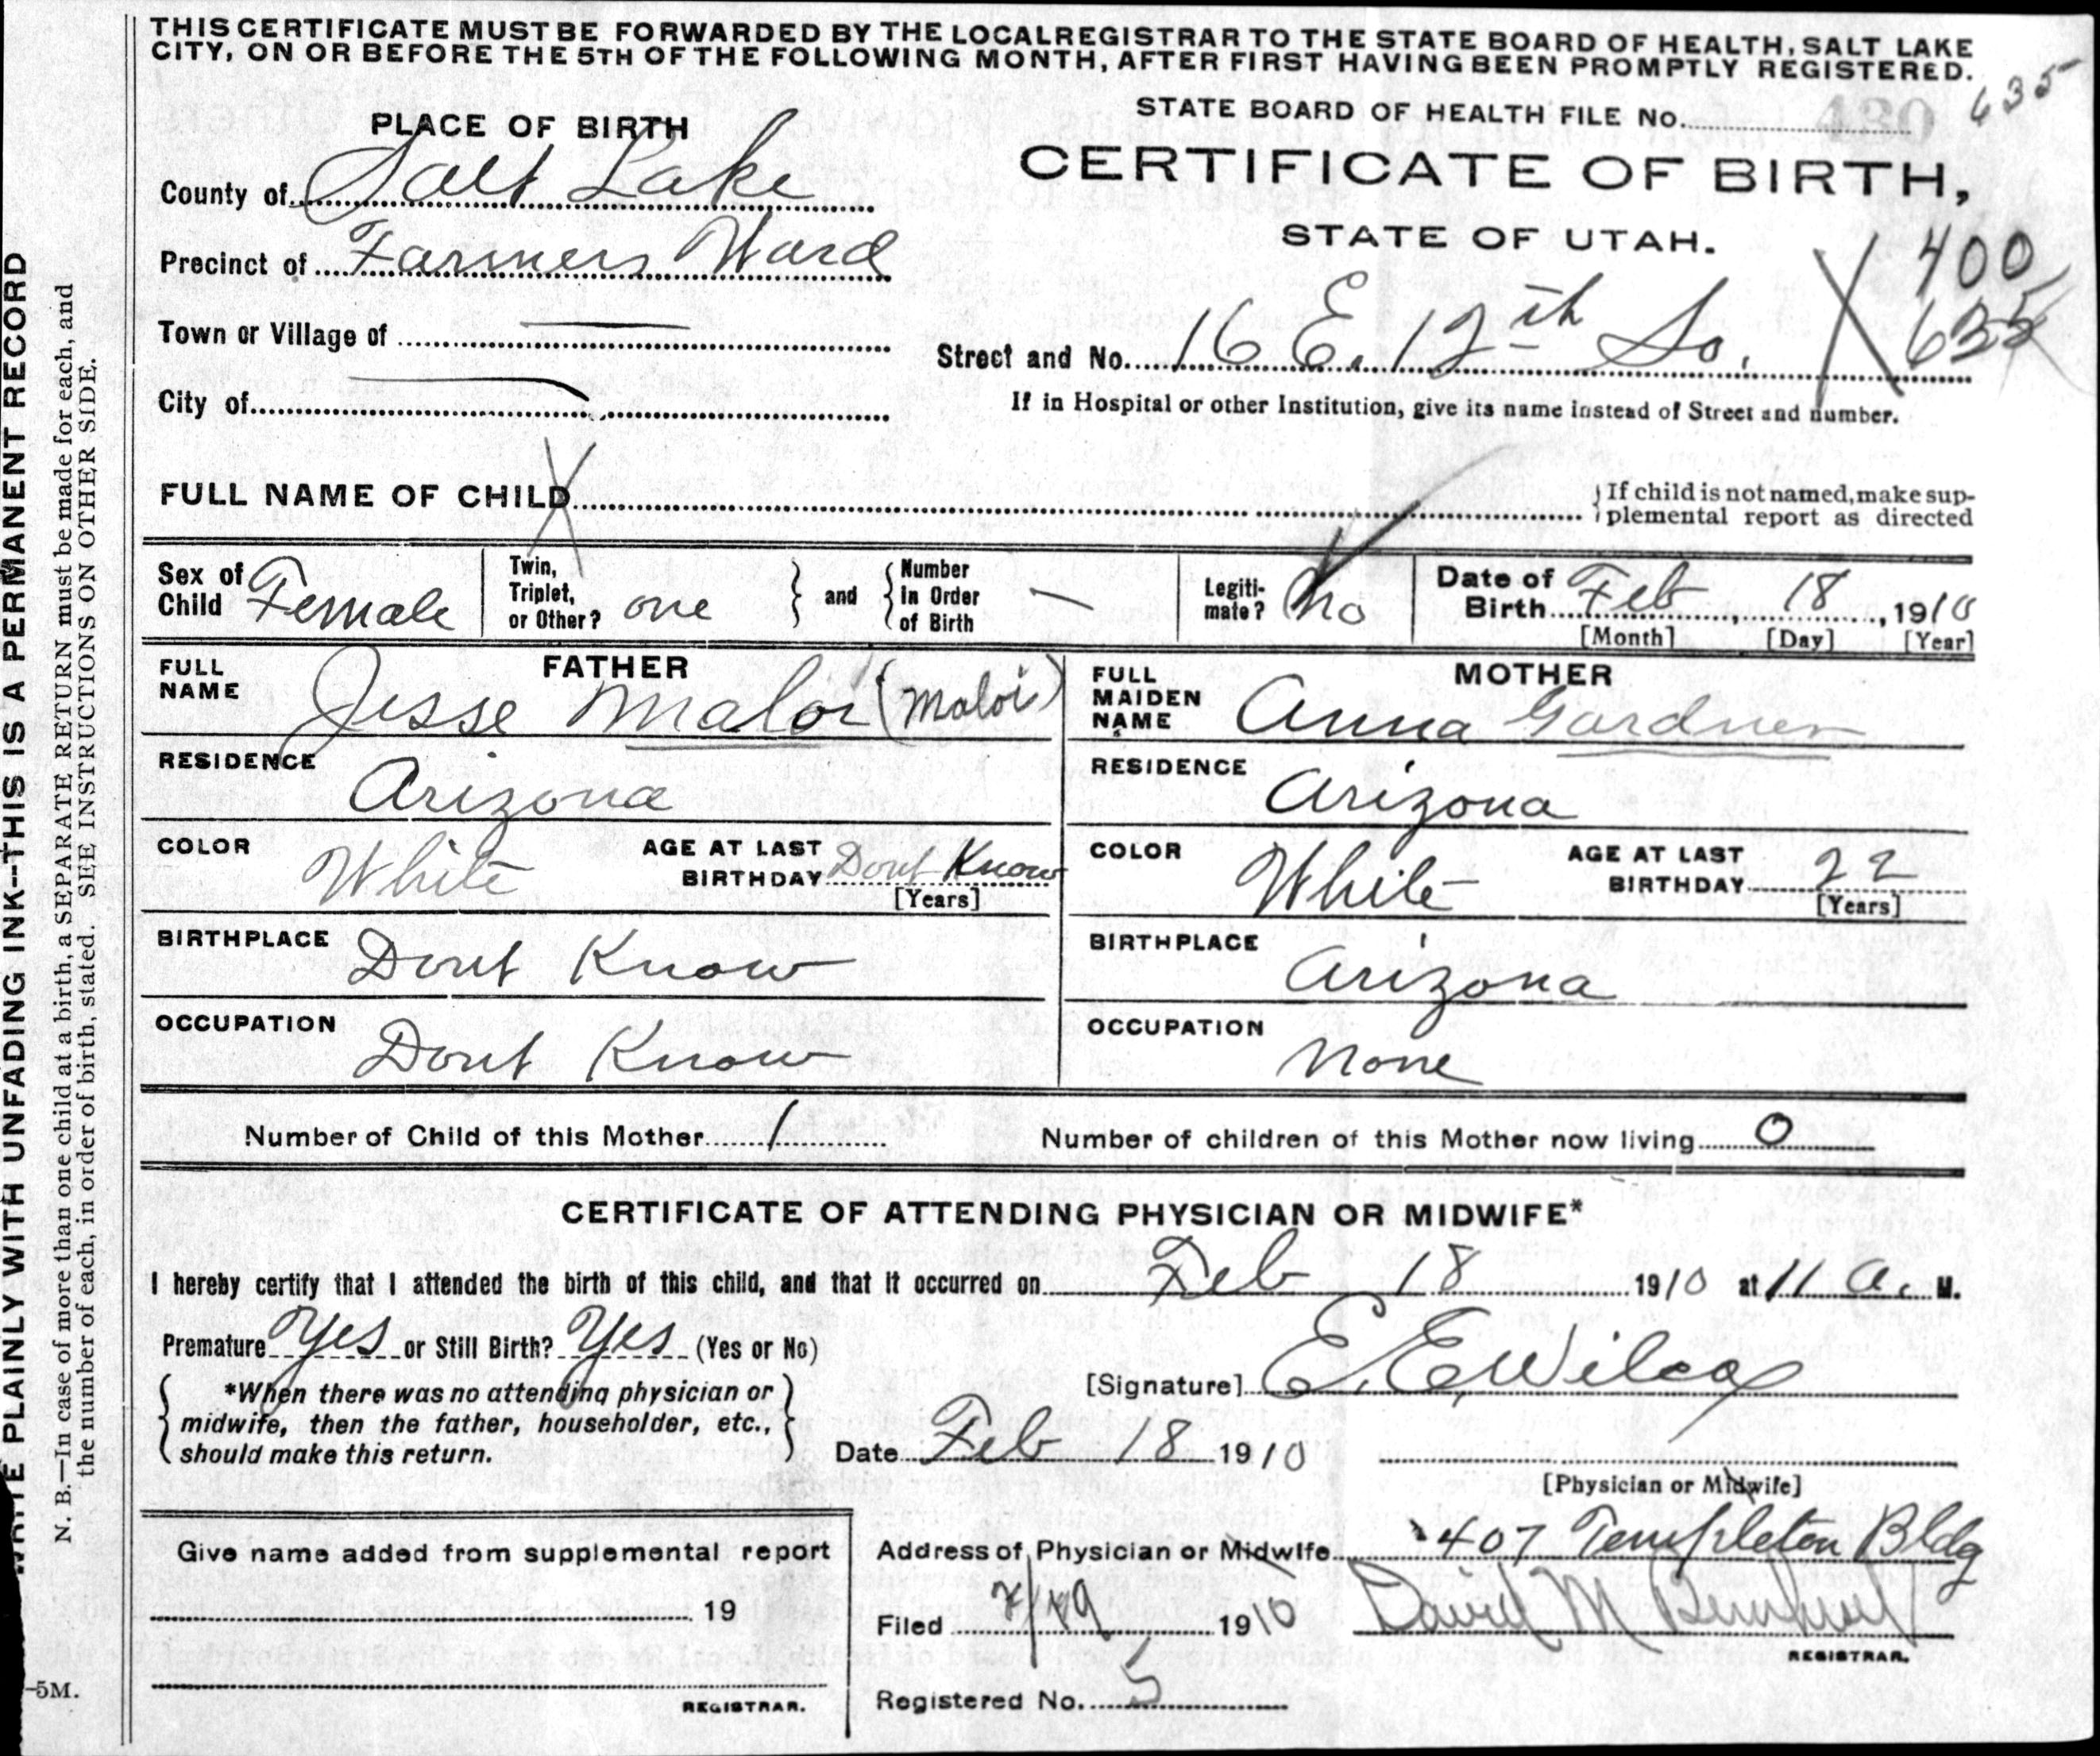 THIS CERTIFICATE MUST BE FORWARDED BY THE LOCAL REGISTRAR TO THE STATE BOARD OF HEALTH, SALT LAKE
CITY, ON OR BEFORE THE 5TH OF THE FOLLOWING MONTH, AFTER FIRST HAVING BEEN PROMPTLY REGISTERED.
635
PLACE OF BIRTH
STATE BOARD OF HEALTH FILE No. 430
County of Salt Lake
CERTIFICATE OF BIRTH,
STATE OF UTAH.
Precinct of Farmers Ward
400
635
Town or Village of
Street and No. 16 E. 12th So.
City of
If in Hospital or other Institution, give its name instead of Street and number.
FULL NAME OF CHILD
If child is not named, make sup-
plemental report as directed
Sex of Child Female
Twin, Triplet, or Other? one
and
Number In Order of Birth —
Legiti-mate? No
Date of Birth Feb 18, 1910
[Month] [Day] [Year]
FATHER
FULL NAME Jesse Maloi (Maloi)
MOTHER
FULL MAIDEN NAME Anna Gardner
RESIDENCE Arizona
RESIDENCE Arizona
COLOR White
AGE AT LAST BIRTHDAY Dont Know
[Years]
COLOR White
AGE AT LAST BIRTHDAY 22
[Years]
BIRTHPLACE Dont Know
BIRTHPLACE Arizona
OCCUPATION Dont Know
OCCUPATION None
Number of Child of this Mother 1
Number of children of this Mother now living 0
CERTIFICATE OF ATTENDING PHYSICIAN OR MIDWIFE*
I hereby certify that I attended the birth of this child, and that it occurred on Feb 18 1910 at 11 a. M.
Premature Yes or Still Birth? Yes (Yes or No)
[Signature] E. E. Wilcox
*When there was no attending physician or
midwife, then the father, householder, etc.,
should make this return.
Date Feb 18 1910
[Physician or Midwife]
Give name added from supplemental report
19
REGISTRAR.
Address of Physician or Midwife 407 Templeton Bldg
Filed 1910 David M
REGISTRAR.
Registered No. 5
WRITE PLAINLY WITH UNFADING INK--THIS IS A PERMANENT RECORD
N. B.—In case of more than one child at a birth, a SEPARATE RETURN must be made for each, and
the number of each, in order of birth, stated. SEE INSTRUCTIONS ON OTHER SIDE.
-5M.